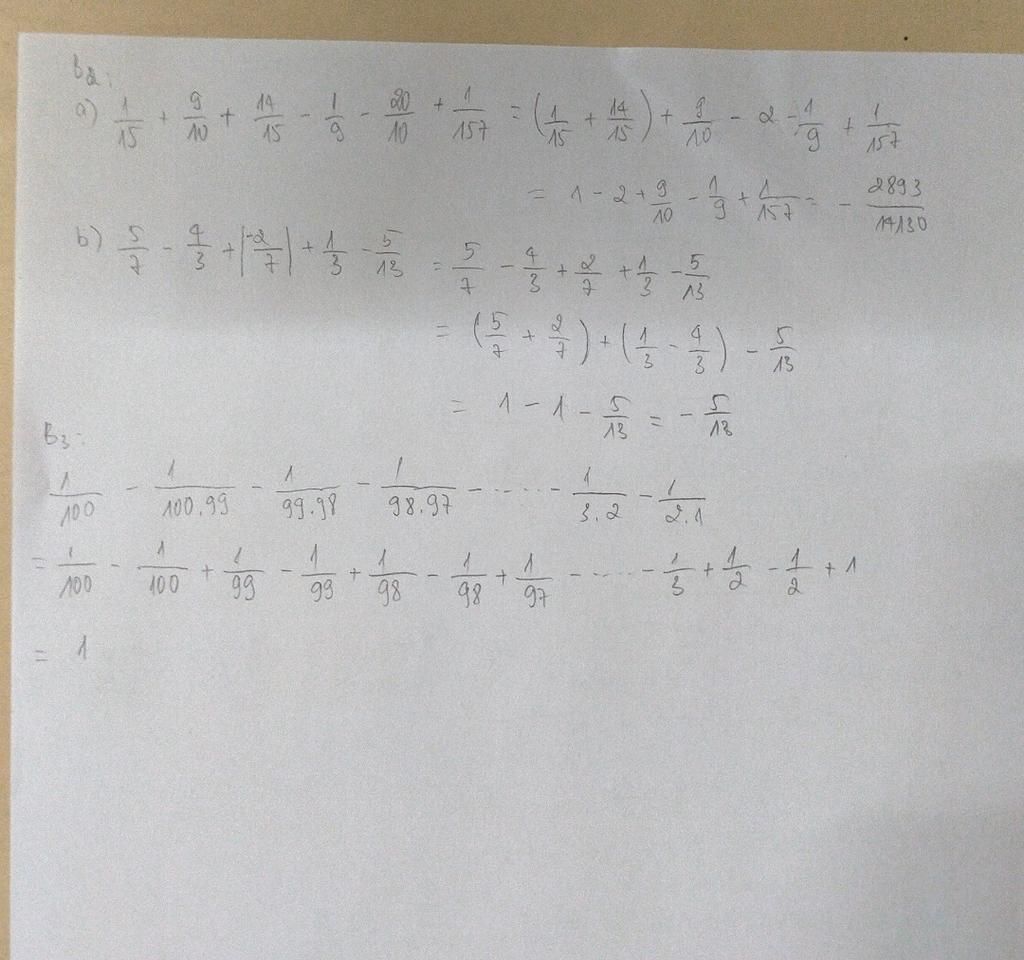 B2:
a) 1/15 + 9/10 + 14/15 - 1/9 - 20/10 + 1/157 = (1/15 + 14/15) + 9/10 - 2 - 1/9 + 1/157
= 1 - 2 + 9/10 - 1/9 + 1/157 = - 2893/14130
b) 5/7 - 4/3 + |-2/7| + 1/3 - 5/13 = 5/7 - 4/3 + 2/7 + 1/3 - 5/13
= (5/7 + 2/7) + (1/3 - 4/3) - 5/13
= 1 - 1 - 5/13 = - 5/13
B3:
1/100 - 1/100.99 - 1/99.98 - 1/98.97 - ..... - 1/3.2 - 1/2.1
= 1/100 - 1/100 + 1/99 - 1/99 + 1/98 - 1/98 + 1/97 - ..... - 1/3 + 1/2 - 1/2 + 1
= 1